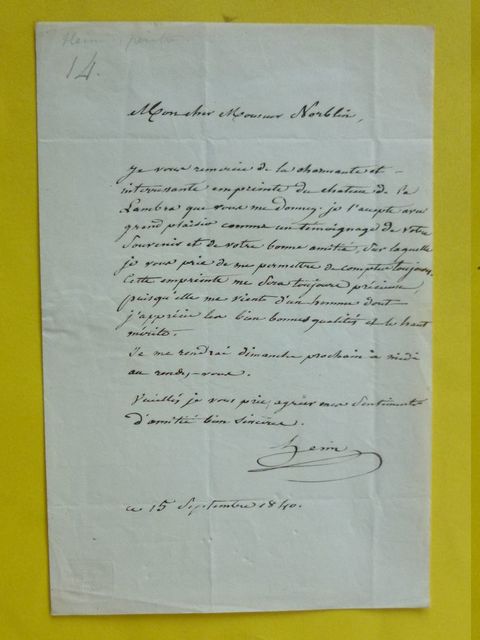 14.
Mon cher Monsieur Norblin,
je vous remercie de la charmante et
interessante empreinte du chateau de
Lambra que vous me donnez. je l'accepte avec
grand plaisir comme un témoignage de votre
Souvenir et de votre bonne amitié, Sur laquelle
je vous prie de me permettre de compter toujours.
Cette empreinte me Sera toujours précieuse,
puisqu'elle me vient d'un homme dont
j'apprécie les bien bonnes qualités et le haut
mérite.
Je me rendrai dimanche prochain à midi
au rendez-vous.
Veuillez je vous prie, agréer mes Sentiments
d'amitié bien sincères.
ce 15 Septembre 1840.